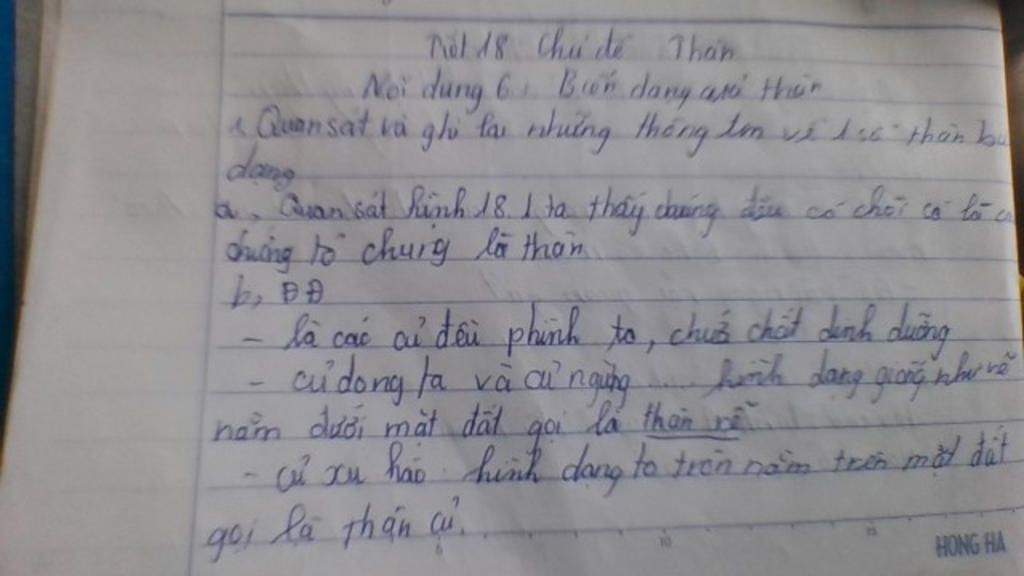 Tiết 18 Chủ đề Thân
Nội dung 6: Biến dạng của thân
1. Quan sát và ghi lại những thông tin về 1 số thân
dạng
a, Quan sát hình 18.1 ta thấy chúng đều có chồi có lá
chứng tỏ chúng là thân
b, ĐĐ
- là các củ đều phình to, chứa chất dinh dưỡng
- củ dong ta và củ ngừng .... hình dạng giống như rễ
nằm dưới mặt đất gọi là thân rễ
- củ xu hào hình dạng to tròn nằm trên mặt đất
gọi là thân củ.
10 15
HONG HA